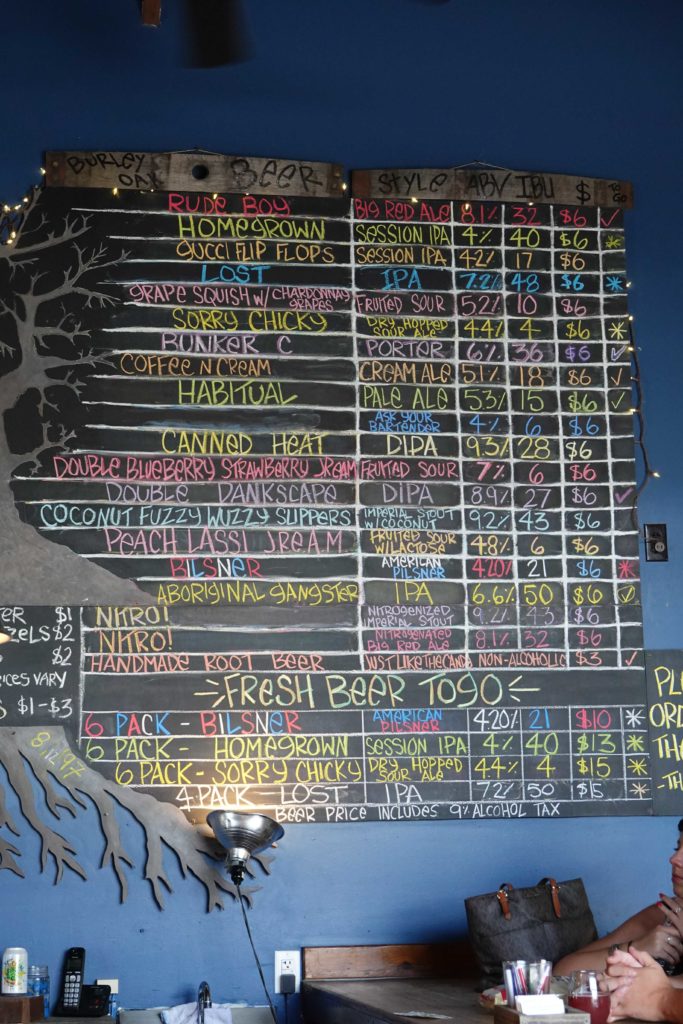 BURLEY OAK BEER STYLE ABV IBU $ TO GO
RUDE BOY BIG RED ALE 8.1% 32 $6 ✓
HOMEGROWN SESSION IPA 4% 40 $6 *
GUCCI FLIP FLOPS SESSION IPA 42% 17 $6
LOST IPA 7.2% 48 $6 *
GRAPE SQUISH W/ CHARDONNAY GRAPES FRUITED SOUR 5.2% 10 $6
SORRY CHICKY DRY HOPPED SOUR ALE 4.4% 4 $6 *
BUNKER C PORTER 6% 36 $6 ✓
COFFEE N CREAM CREAM ALE 5.1% 18 $6 ✓
HABITUAL PALE ALE 5.3% 15 $6 ✓
ASK YOUR BARTENDER 4% 6 $6
CANNED HEAT DIPA 9.3% 28 $6
DOUBLE BLUEBERRY STRAWBERRY JREAM FRUITED SOUR 7% 6 $6
DOUBLE DANKSCAPE DIPA 8.9% 27 $6 ✓
COCONUT FUZZY WUZZY SLIPPERS IMPERIAL STOUT W/ COCONUT 9.2% 43 $6
PEACH LASSI J.R.E.A.M FRUITED SOUR W/LACTOSE 4.8% 6 $6
BILSNER AMERICAN PILSNER 4.20% 21 $6 *
ABORIGINAL GANGSTER IPA 6.6% 50 $6 ✓
NITRO! NITROGENIZED IMPERIAL STOUT 9.2% 43 $6
NITRO! NITROGENATED BIG RED ALE 8.1% 32 $6
HANDMADE ROOT BEER JUST LIKE THE CANDY NON-ALCOHOLIC $3 ✓
FRESH BEER TO GO
6 PACK - BILSNER AMERICAN PILSNER 4.20% 21 $10 *
6 PACK - HOMEGROWN SESSION IPA 4% 40 $13 *
6 PACK - SORRY CHICKY DRY HOPPED SOUR ALE 4.4% 4 $15 *
4 PACK - LOST IPA 7.2% 50 $15 *
BEER PRICE INCLUDES 9% ALCOHOL TAX
$1
$2
$2
VARY
$1-$3